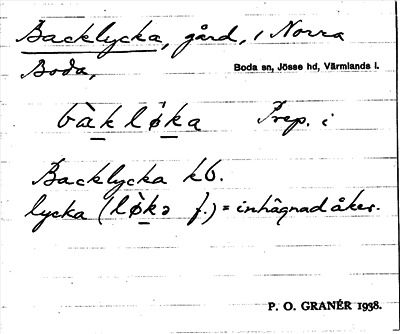 Backlycka, gård, i Norra
Boda,
Boda sn, Jösse hd, Värmlands l.
bàklø̀ka Prep. i
Backlycka kb.
lycka (lø̀kə f.) = inhägnad åker.
P. O. GRANÉR 1938.